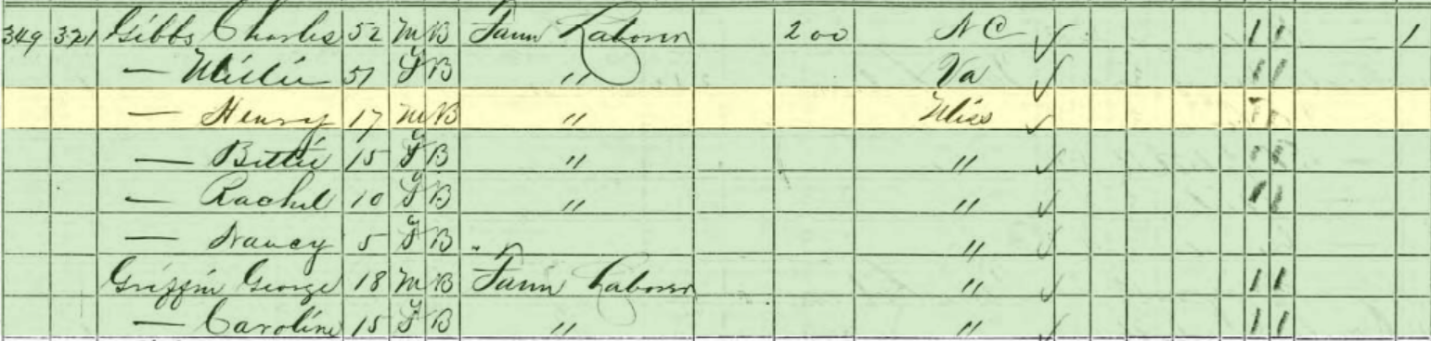 349 321 Gibbs Charles 52 M B Farm Laborer 200 NC ✓ 1 1 1
— Millie 51 F B " Va ✓ 1 1
— Henry 17 M B " Miss ✓ 1 1
— Bettie 15 F B " " ✓ 1 1
— Rachel 10 F B " " ✓ 1 1
— Nancy 5 F B " ✓
Griffin George 18 M B Farm Laborer " ✓ 1 1
— Caroline 15 F B " " ✓ 1 1